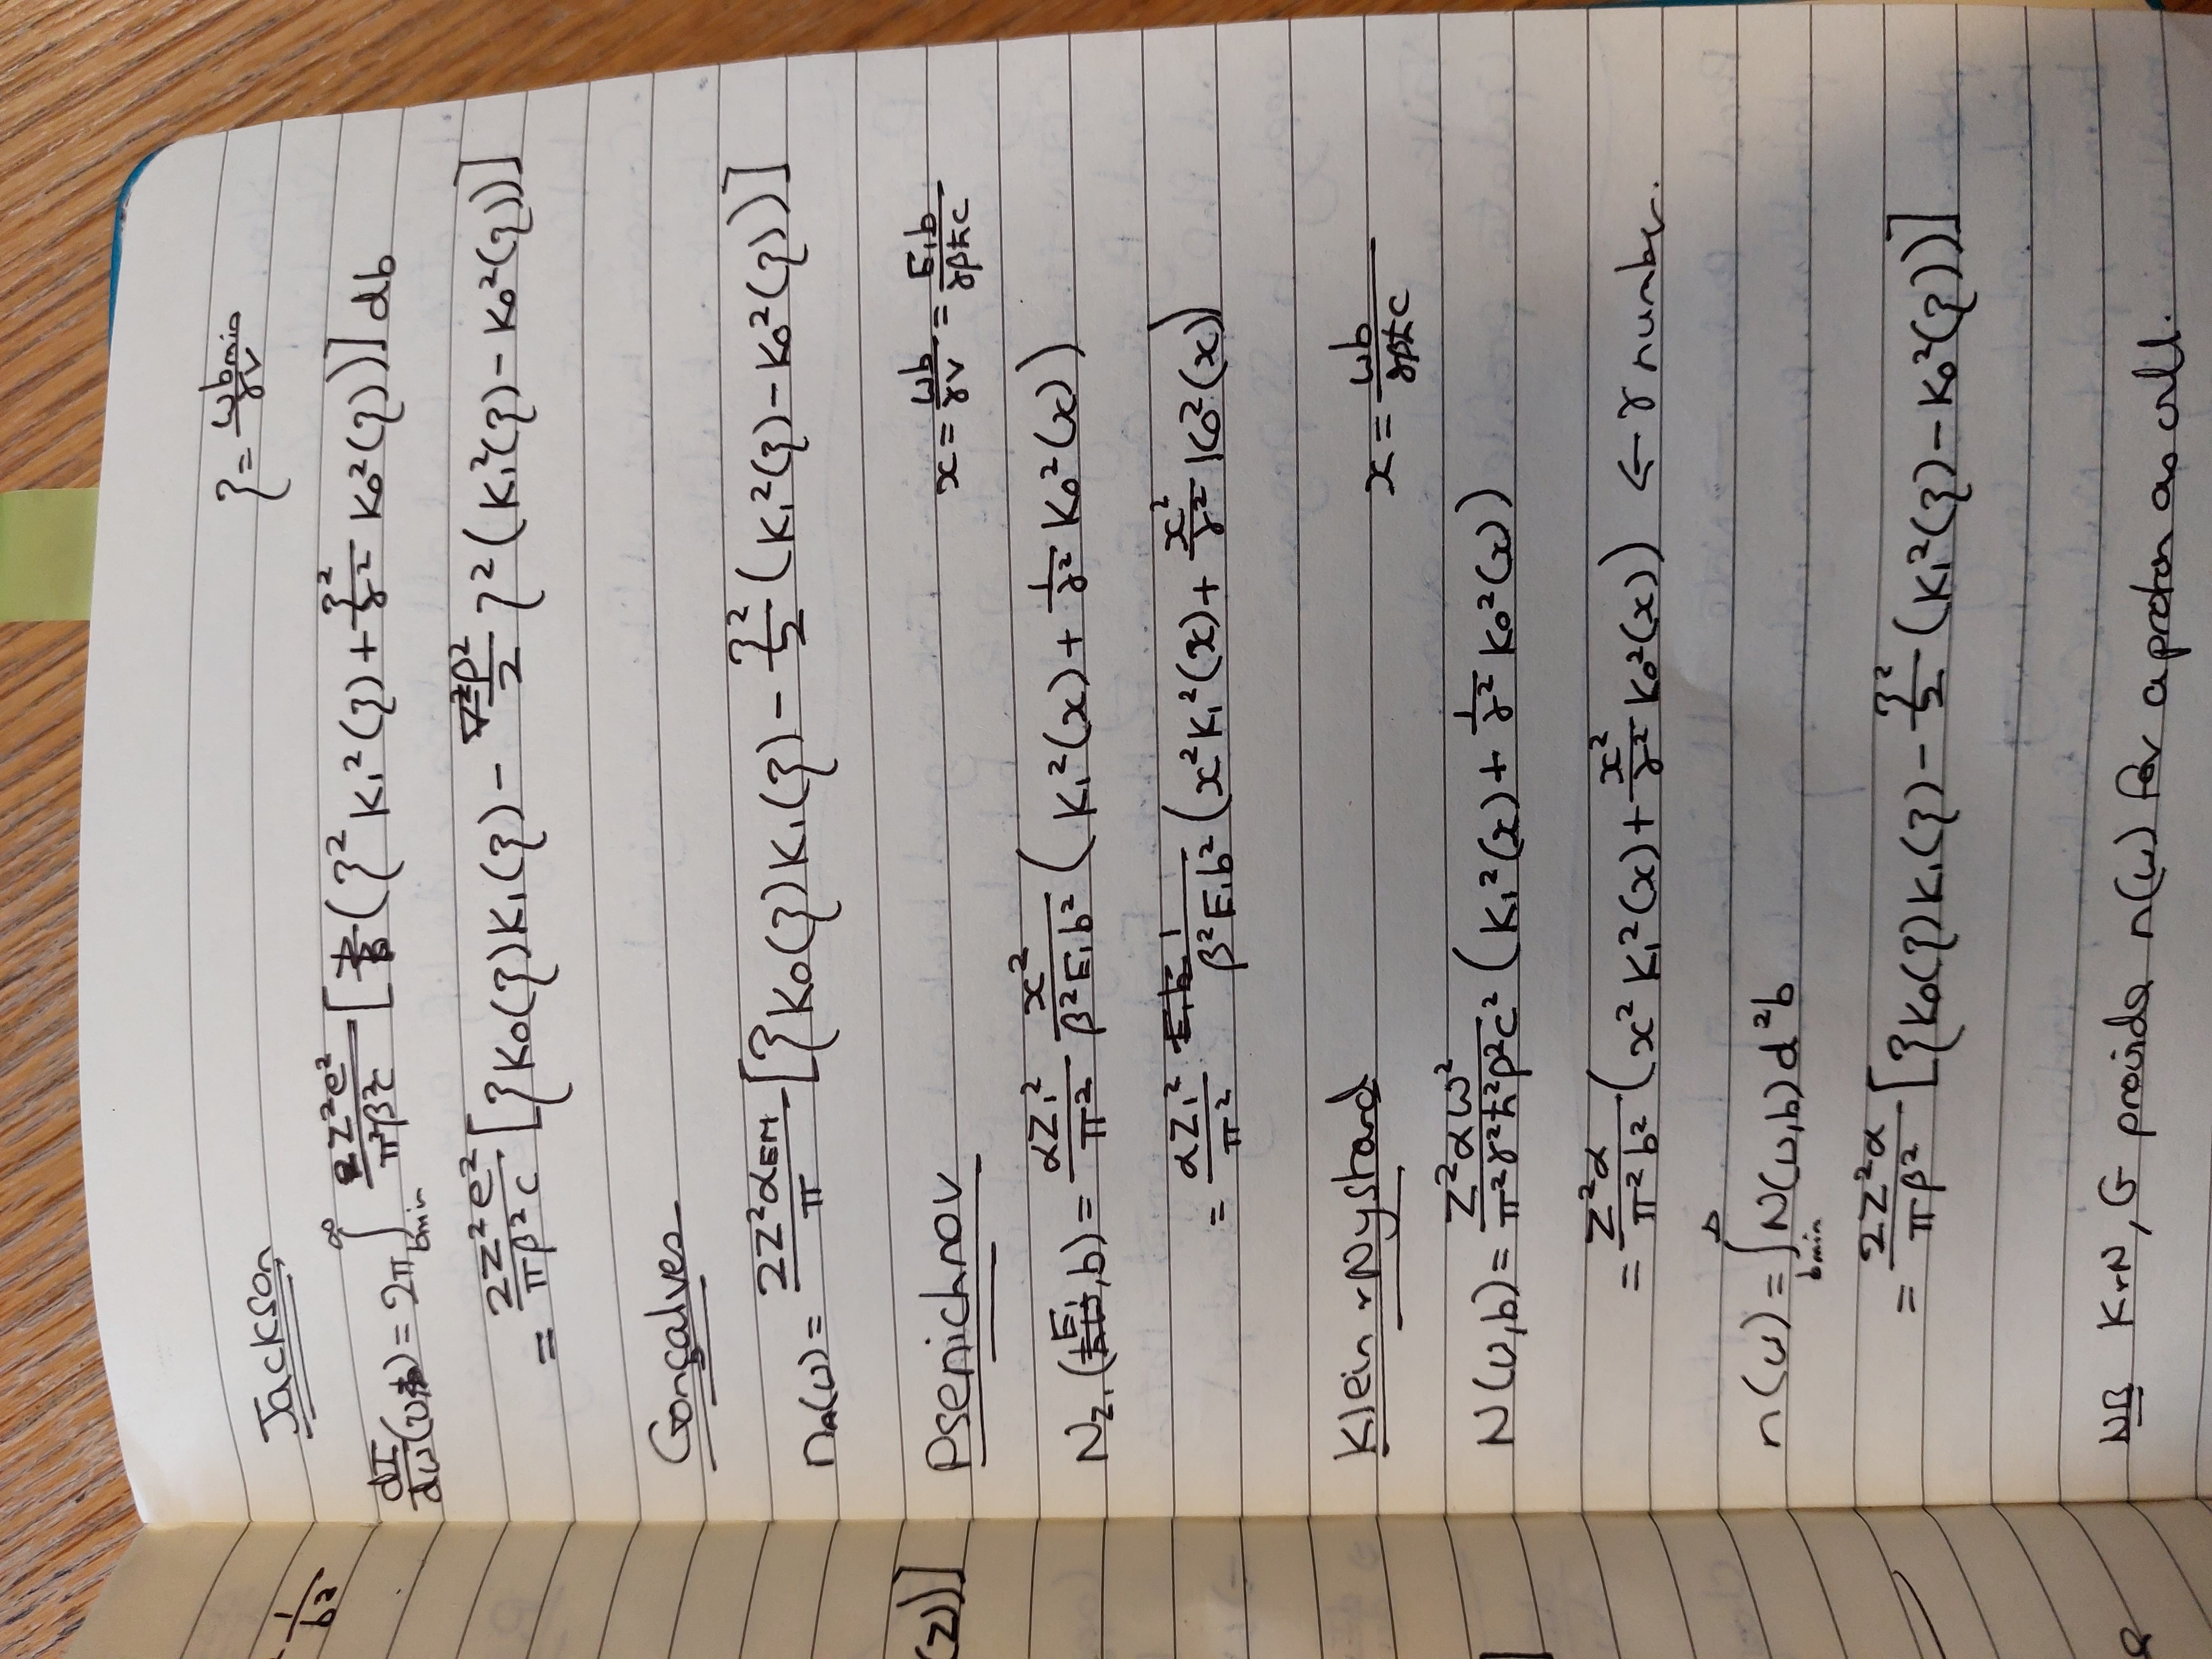 Jackson
ξ = ωbmin/γv
dI/dω(ω) = 2π ∫_{bmin}^{∞} Z²e²/π²β²c [1/b(ξ² K₁²(ξ) + ξ²/γ² K₀²(ξ))] db
= 2Z²e²/πβ²c [ξK₀(ξ)K₁(ξ) − β²/2 ξ²(K₁²(ξ) − K₀²(ξ))]
Gonçalves
n_A(ω) = 2Z²α_EM/π [ξK₀(ξ)K₁(ξ) − ξ²/2 (K₁²(ξ) − K₀²(ξ))]
Psenichnov
x = ωb/γv = E₁b/γβħc
N_{Z₁}(E₁, b) = αZ₁²/π² x²/β²E₁b² (K₁²(x) + 1/γ² K₀²(x))
= αZ₁²/π² 1/β²E₁b² (x²K₁²(x) + x²/γ² K₀²(x))
Klein + Nystrand
x = ωb/γβħc
N(ω,b) = Z²αω²/π²γ²ħ²β²c² (K₁²(x) + 1/γ² K₀²(x))
= Z²α/π²b² (x² K₁²(x) + x²/γ² K₀²(x)) ← γ number.
n(ω) = ∫_{bmin}^{∞} N(ω,b) d²b
= 2Z²α/πβ² [ξK₀(ξ)K₁(ξ) − ξ²/2 (K₁²(ξ) − K₀²(ξ))]
NB K+N, G provide n(ω) for a proton as well.
1/b²
(z))]